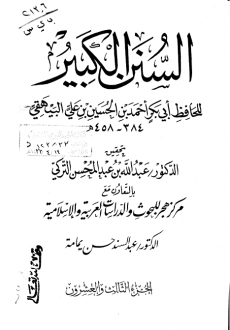 ٢١٣٠٦
السنن الكبير
للحافظ أبي بكر أحمد بن الحسين بن علي البيهقي
٣٨٤ - ٤٥٨ هـ
تحقيق
الدكتور عبد الله بن عبد المحسن التركي
بالتعاون مع
مركز هجر للبحوث والدراسات العربية والإسلامية
الدكتور عبد السند حسن يمامة
الجزء الثالث والعشرون